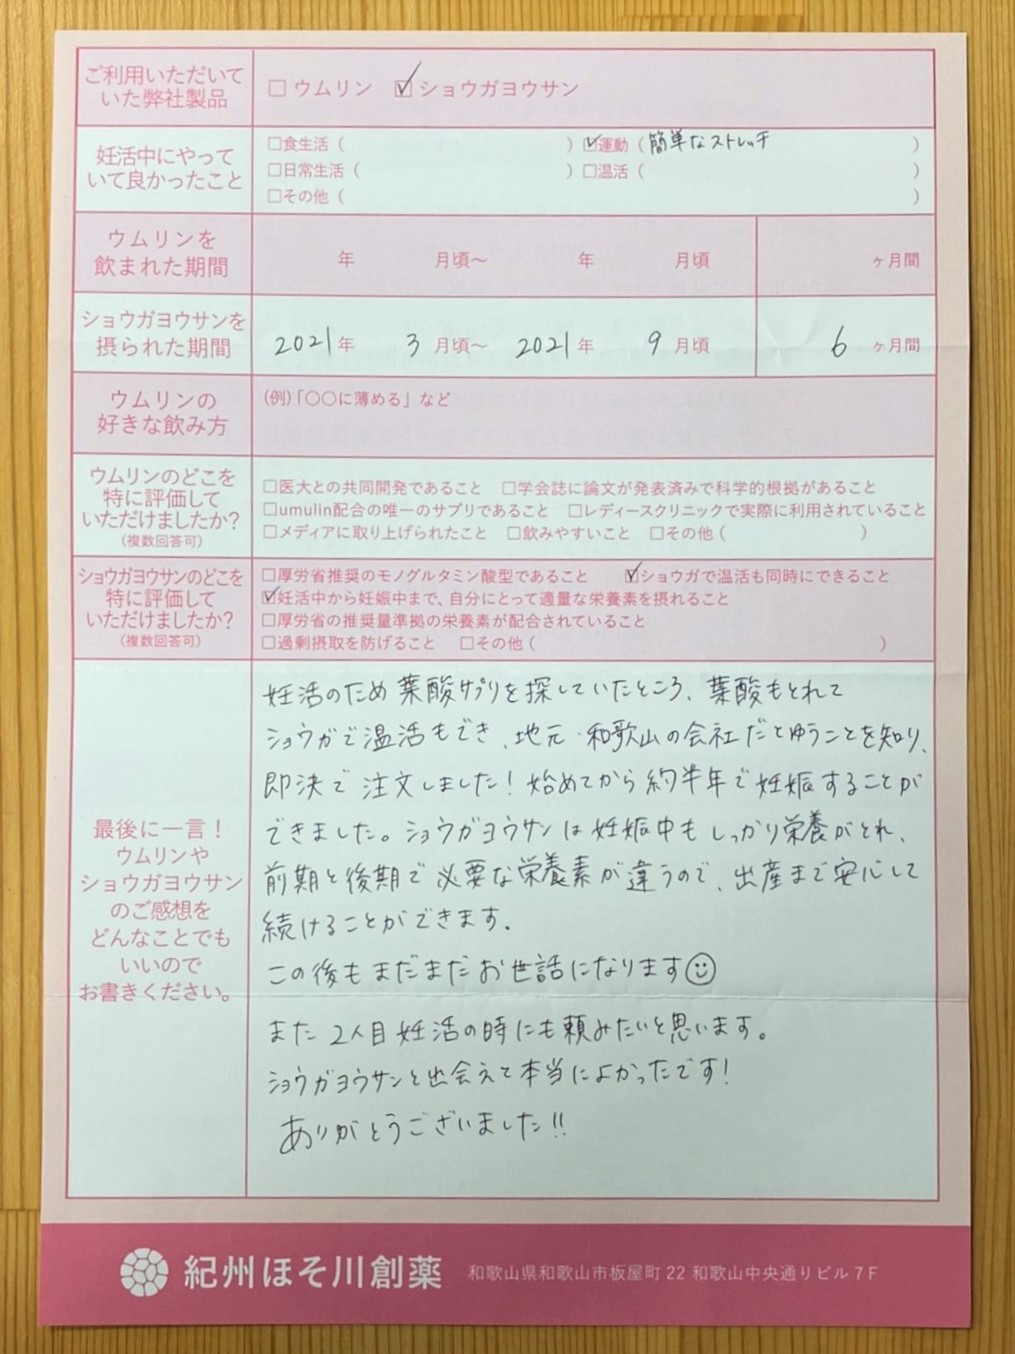 ご利用いただいて
いた弊社製品
□ウムリン ☑ショウガヨウサン
妊活中にやって
いて良かったこと
□食生活( ) ☑運動(簡単なストレッチ )
□日常生活( ) □温活( )
□その他( )
ウムリンを
飲まれた期間
年 月頃〜 年 月頃 ヶ月間
ショウガヨウサンを
摂られた期間
2021年 3月頃〜 2021年 9月頃 6ヶ月間
ウムリンの
好きな飲み方
(例)「〇〇に薄める」など
ウムリンのどこを
特に評価して
いただけましたか?
(複数回答可)
□医大との共同開発であること □学会誌に論文が発表済みで科学的根拠があること
□umulin配合の唯一のサプリであること □レディースクリニックで実際に利用されていること
□メディアに取り上げられたこと □飲みやすいこと □その他( )
ショウガヨウサンのどこを
特に評価して
いただけましたか?
(複数回答可)
□厚労省推奨のモノグルタミン酸型であること ☑ショウガで温活も同時にできること
☑妊活中から妊娠中まで、自分にとって適量な栄養素を摂れること
□厚労省の推奨量準拠の栄養素が配合されていること
□過剰摂取を防げること □その他( )
最後に一言!
ウムリンや
ショウガヨウサン
のご感想を
どんなことでも
いいので
お書きください。
妊活のため葉酸サプリを探していたところ、葉酸もとれて
ショウガで温活もでき、地元・和歌山の会社だとゆうことを知り、
即決で注文しました!始めてから約半年で妊娠することが
できました。ショウガヨウサンは妊娠中もしっかり栄養がとれ、
前期と後期で必要な栄養素が違うので、出産まで安心して
続けることができます.
この後もまだまだお世話になります☺
また2人目妊活の時にも頼みたいと思います。
ショウガヨウサンと出会えて本当によかったです!
ありがとうございました!!
紀州ほそ川創薬 和歌山県和歌山市板屋町22 和歌山中央通りビル7F